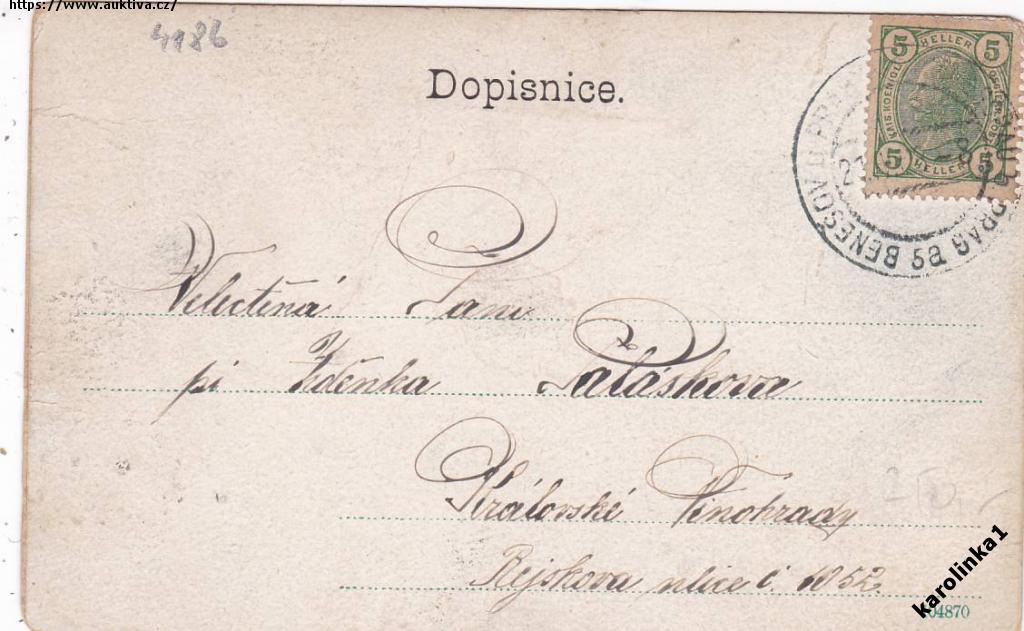 https://www.auktiva.cz/
4186
Dopisnice.
5 HELLER 5
KAIS. KOENIGL.
5 HELLER 5
BENEŠOV U PRAHY
Velectěná Paní
pí Zdenka Saláskova
Královské Vinohrady
Rejskova ulice č. 1052.
karolinka1
04870